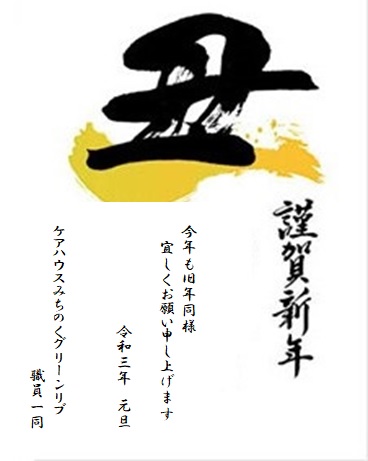 丑
謹賀新年
今年も旧年同様
宜しくお願い申し上げます
令和三年 元旦
ケアハウスみちのくグリーンリブ
職員一同